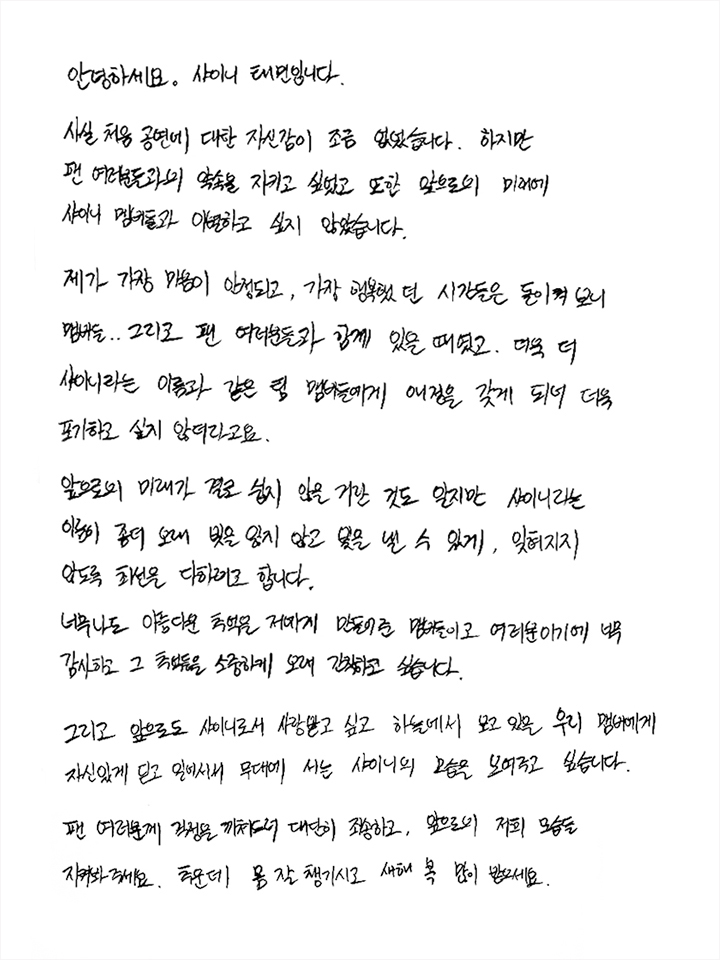 안녕하세요. 샤이니 태민입니다.
사실 처음 공연에 대한 자신감이 조금 없었습니다. 하지만
팬 여러분들과의 약속을 지키고 싶었고 또한 앞으로의 미래에
샤이니 멤버들과 이변하고 싶지 않았습니다.
제가 가장 마음이 안정되고, 가장 행복했던 시간들은 돌이켜 보니
멤버들.. 그리고 팬 여러분들과 함께 있을 때였고. 더욱 더
샤이니라는 이름과 같은 팀 멤버들에게 애정을 갖게 되너 더욱
포기하고 싶지 않더라고요.
앞으로의 미래가 결코 쉽지 않을 거란 것도 알지만 샤이니라는
이름이 좀더 오래 빛을 잃지 않고 빛을 낼 수 있게, 잊혀지지
않도록 최선을 다하려고 합니다.
너무나도 아름다운 추억을 저에게 만들어준 멤버들이고 여러분이기에 너무
감사하고 그 추억들을 소중하게 오래 간직하고 싶습니다.
그리고 앞으로도 샤이니로서 사랑받고 싶고 하늘에서 보고 있을 우리 멤버에게
자신있게 딛고 일어서서 무대에 서는 샤이니의 모습을 보여주고 싶습니다.
팬 여러분께 걱정을 끼쳐드려 대단히 죄송하고, 앞으로의 저희 모습들
지켜봐주세요. 추운데 몸 잘 챙기시고 새해 복 많이 받으세요.